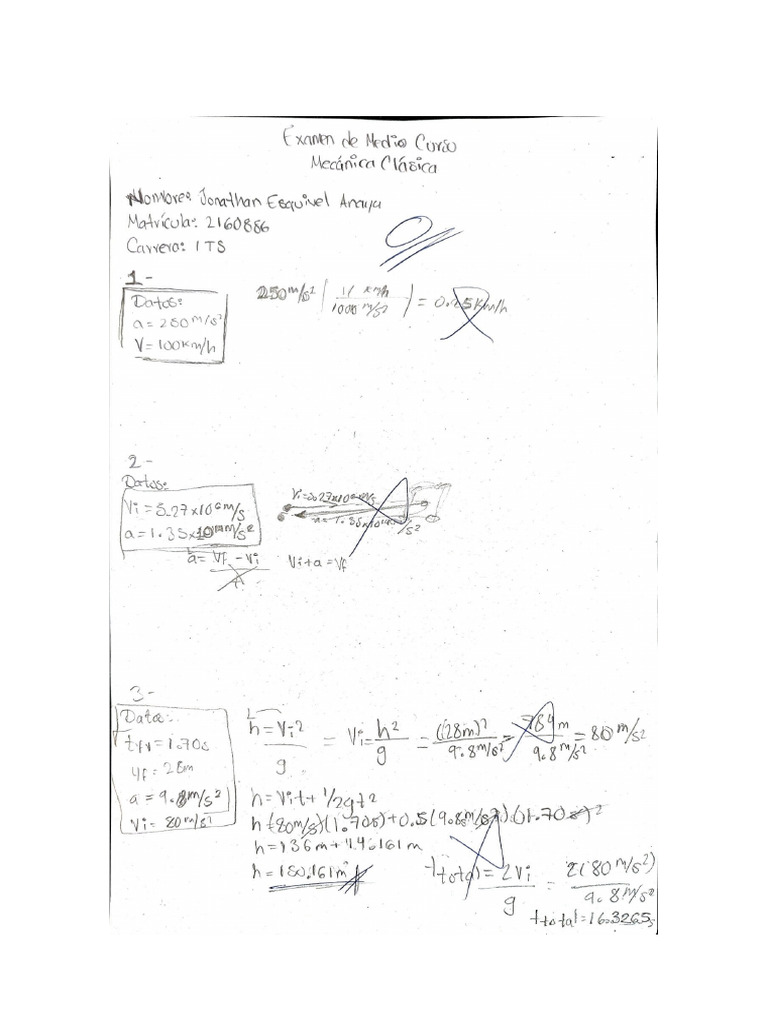 Examen de Medio Curso
Mecánica Clásica
Nombre: Jonathan Esquivel Anaya
Matrícula: 2160886
Carrera: ITS
0
1-
Datos:
a = 250 m/s²
V = 100 km/h
250 m/s² ( 11 km/h / 1000 m/s² ) = 0.25 km/h
2-
Datos:
Vi = 5.27x10⁶ m/s
a = 1.35x10 m/s²
a = Vf - Vi
Vi + a = Vf
3-
Datos:
tfv = 1.70s
yf = 28m
a = 9.8 m/s²
Vi = 80 m/s²
h = Vi² / g = Vi = h² / g = ((28m)² / 9.8 m/s² = 784 m / 9.8 m/s² = 80 m/s²
h = Vit + 1/2gt²
h = (80 m/s)(1.70s) + 0.5(9.8 m/s²)(1.70s)²
h = 136m + 14.161m
h = 150.161m
t total = 2Vi / g = 2(80 m/s²) / 9.8 m/s²
t total = 16.3265s